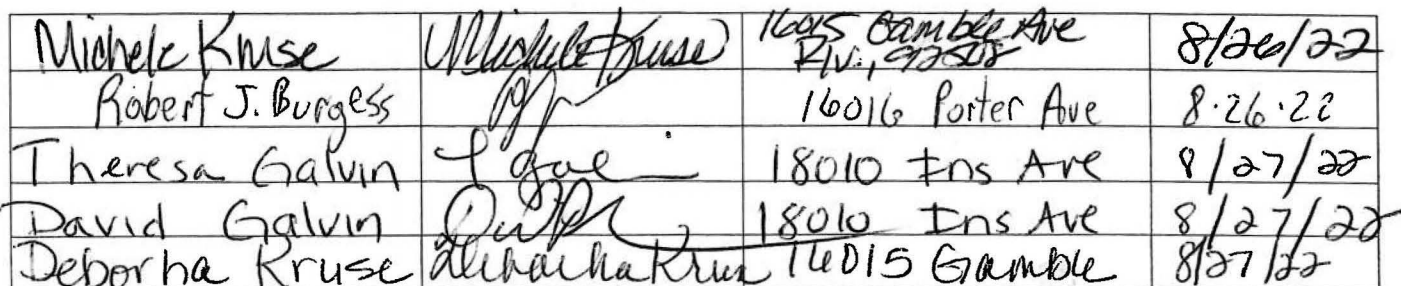 Michele Kruse Michele Kruse 16015 Gamble Ave
Riv., 92508 8/26/22
Robert J. Burgess 16016 Porter Ave 8.26.22
Theresa Galvin 18010 Ins Ave 8/27/22
David Galvin 18010 Ins Ave 8/27/22
Deborha Kruse Deborha Kruse 16015 Gamble 8/27/22